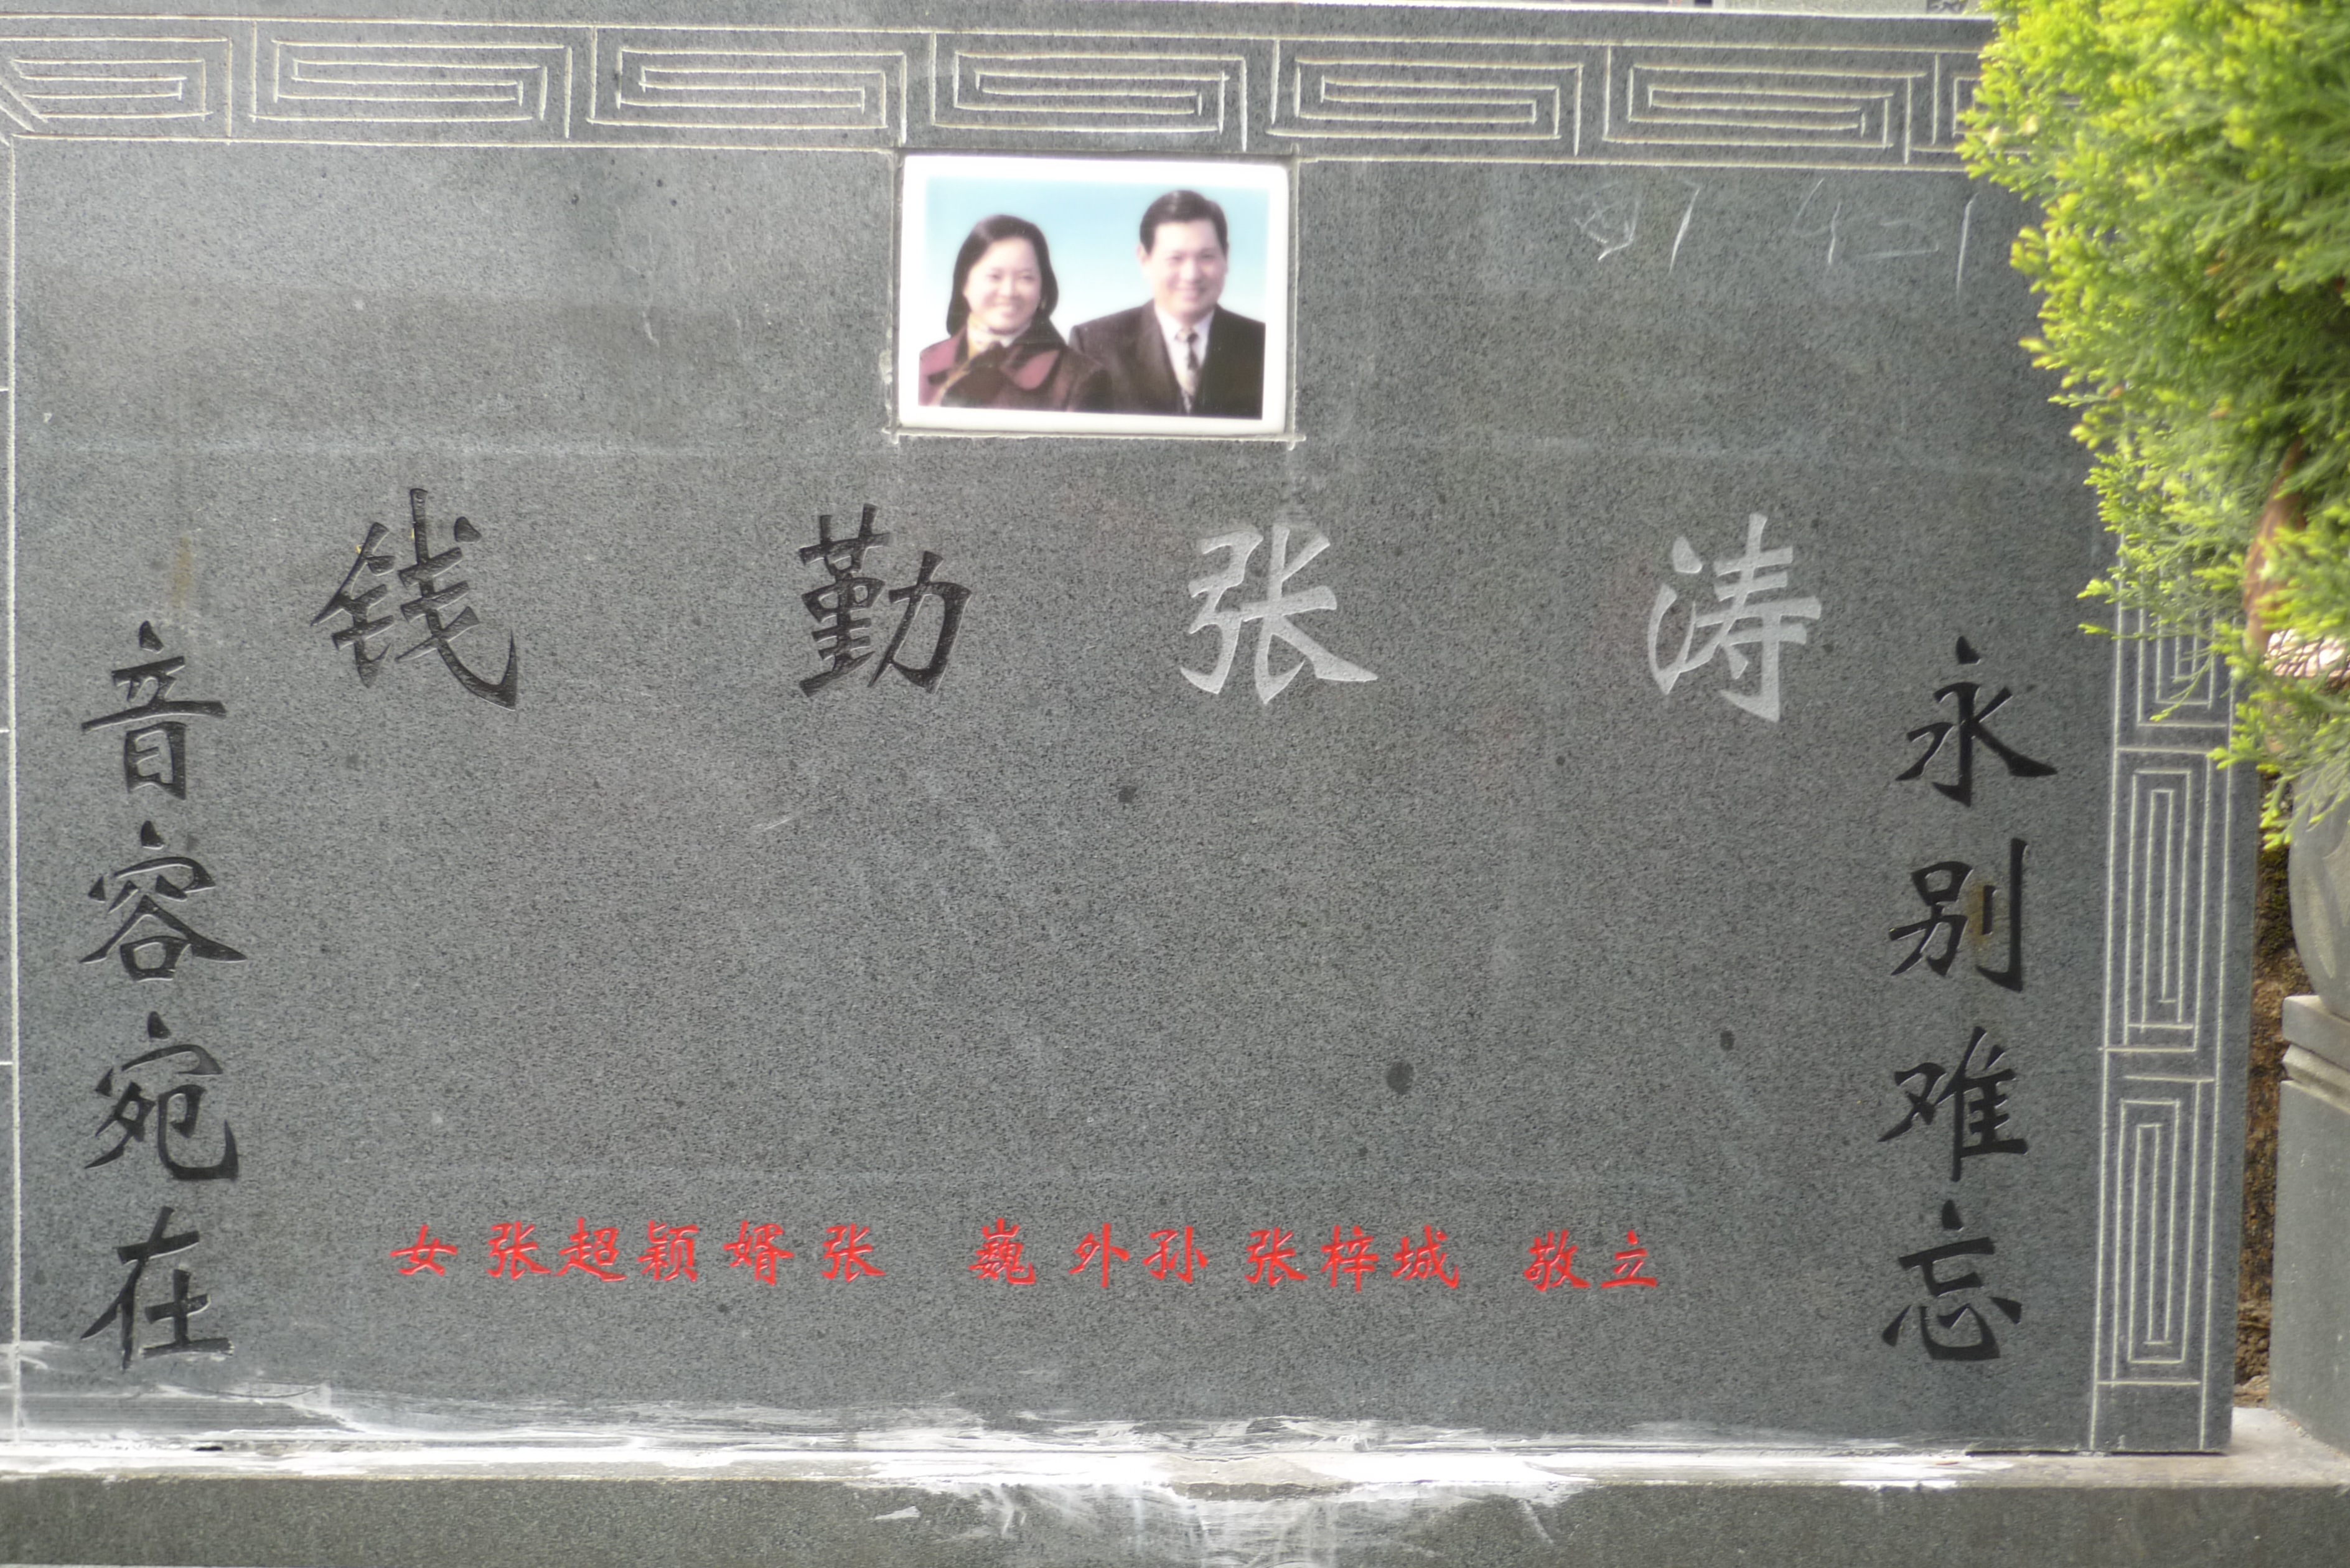 钱勤张涛
音容宛在
永别难忘
女 张超颖 婿 张 巍 外孙 张梓城 敬立